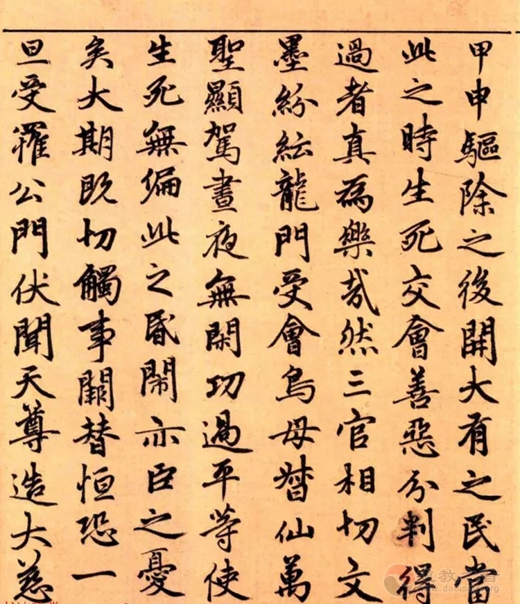 甲申驅除之後開大有之民當
此之時生死交會善惡分判得
過者真為樂哉然三官相切文
墨紛紜龍門受會鳥母督仙萬
聖顯駕晝夜無閑功過平等使
生死無偏此之昏鬧亦臣之憂
矣大期既切觸事闕替恒恐一
旦受罹公門伏聞天尊造大慈